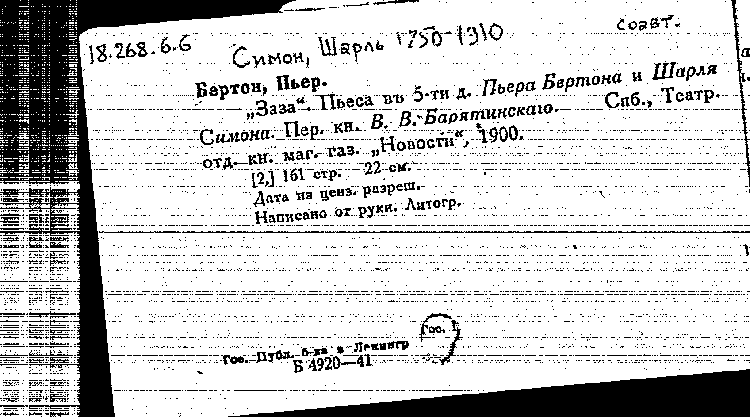 18.268.6.6
Симон, Шарль 1850-1910
соавт.
Бертон, Пьер.
„Заза“. Пьеса въ 5-ти д. Пьера Бертона и Шарля
Симона. Пер. кн. В. В. Барятинскаго. Спб., Театр.
отд. кн. маг. газ. „Новости“, 1900.
[2,] 161 стр. 22 см.
Дата на ценз. разреш.
Написано от руки. Литогр.
Гос. Публ. б-ка в Ленингр
Б 4920—41
Гос.